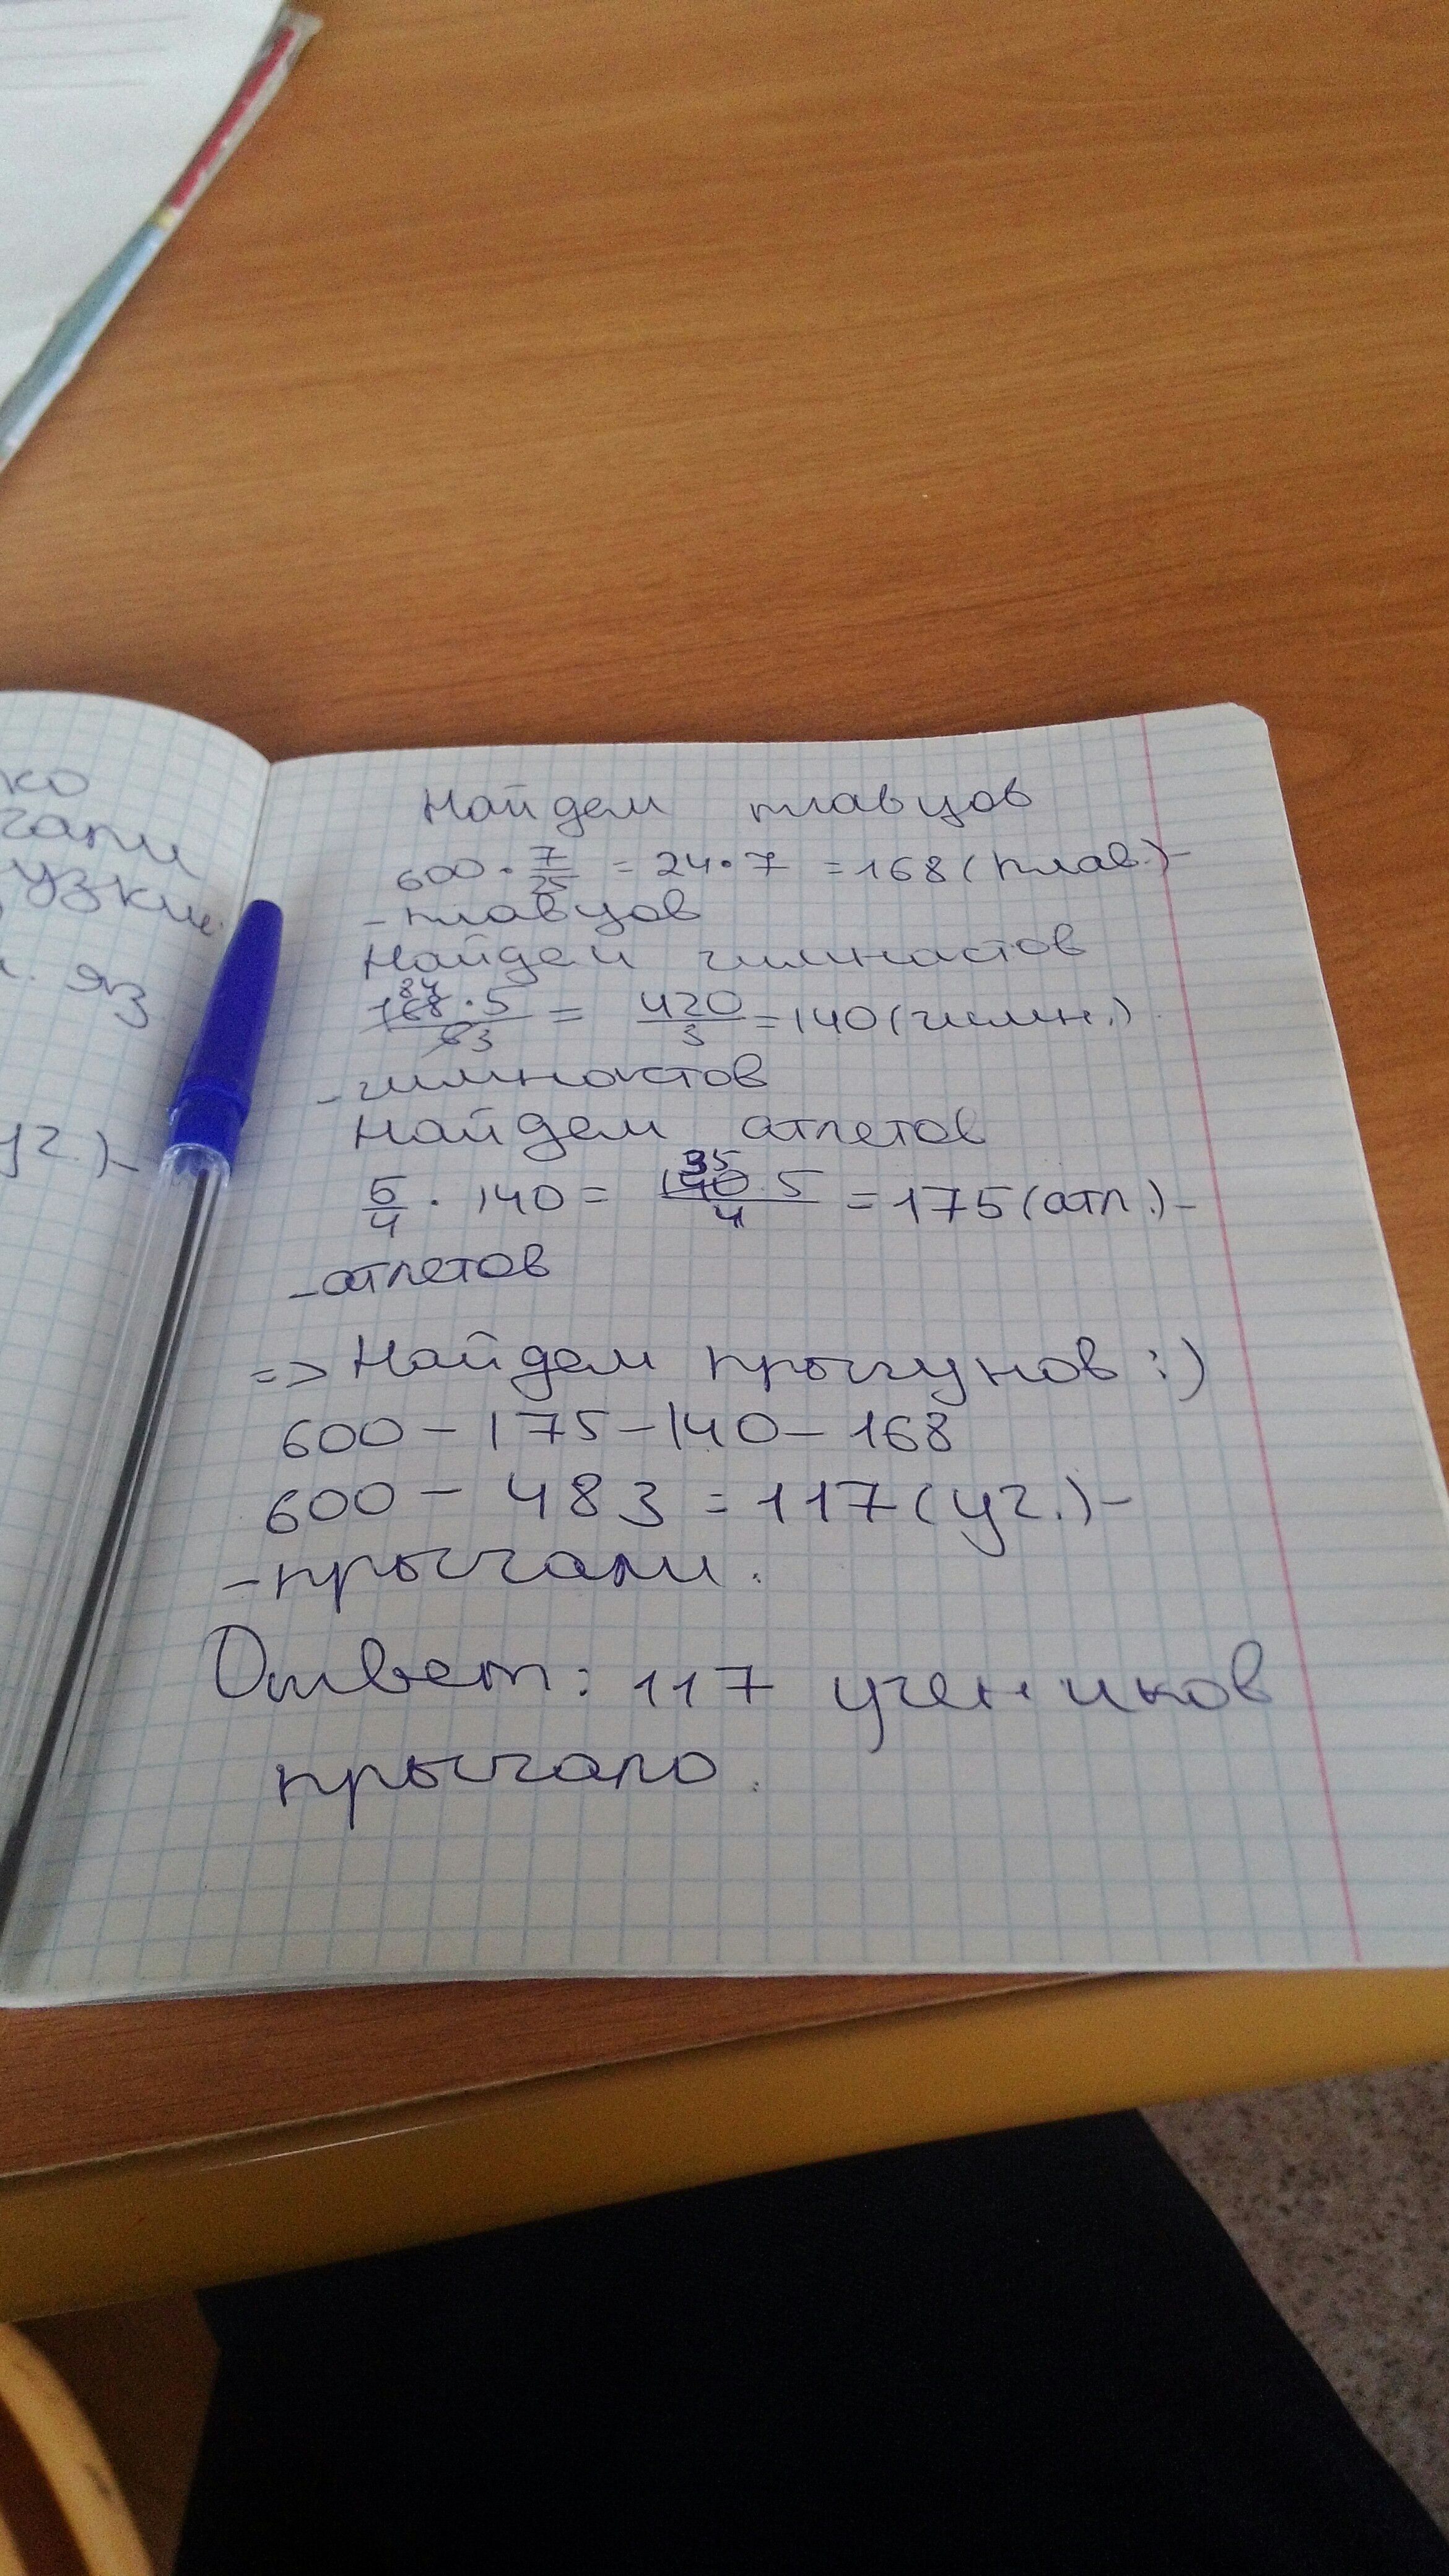 ко
узкий
яз
уг.)-
Найдем пловцов
600 · 7/25 = 24·7 = 168 (плав.)-
-пловцов
Найдем гимнастов
84
168·5/63 = 420/3 = 140 (гимн.)
-гимностов
Найдем атлетов
35
5/4 · 140 = 140·5/4 = 175 (атл.)-
-атлетов
=> Найдем прыгунов :)
600 - 175 - 140 - 168
600 - 483 = 117 (уч.)-
-прыгали.
Ответ: 117 учеников
прыгало.